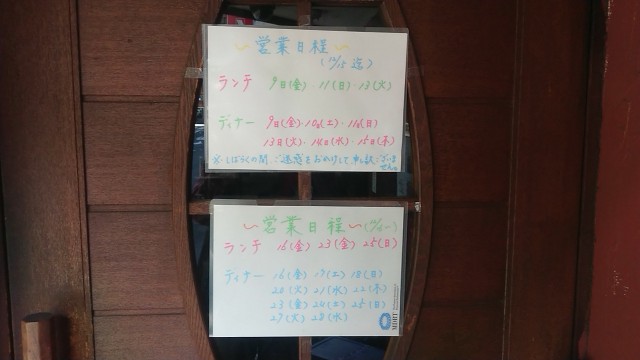 ～営業日程～
(12/15迄)
ランチ 9日(金)・11(日)・13(火)
ディナー 9日(金)・10日(土)・11日(日)
13日(火)・14日(水)・15日(木)
※しばらくの間、ご迷惑をおかけして申し訳ございません。
～営業日程～
ランチ 16(金) 23(金) 25(日)
ディナー 16(金) 17(土) 18(日)
20(火) 21(水) 22(木)
23(金) 24(土) 25(日)
27(火) 28(水)